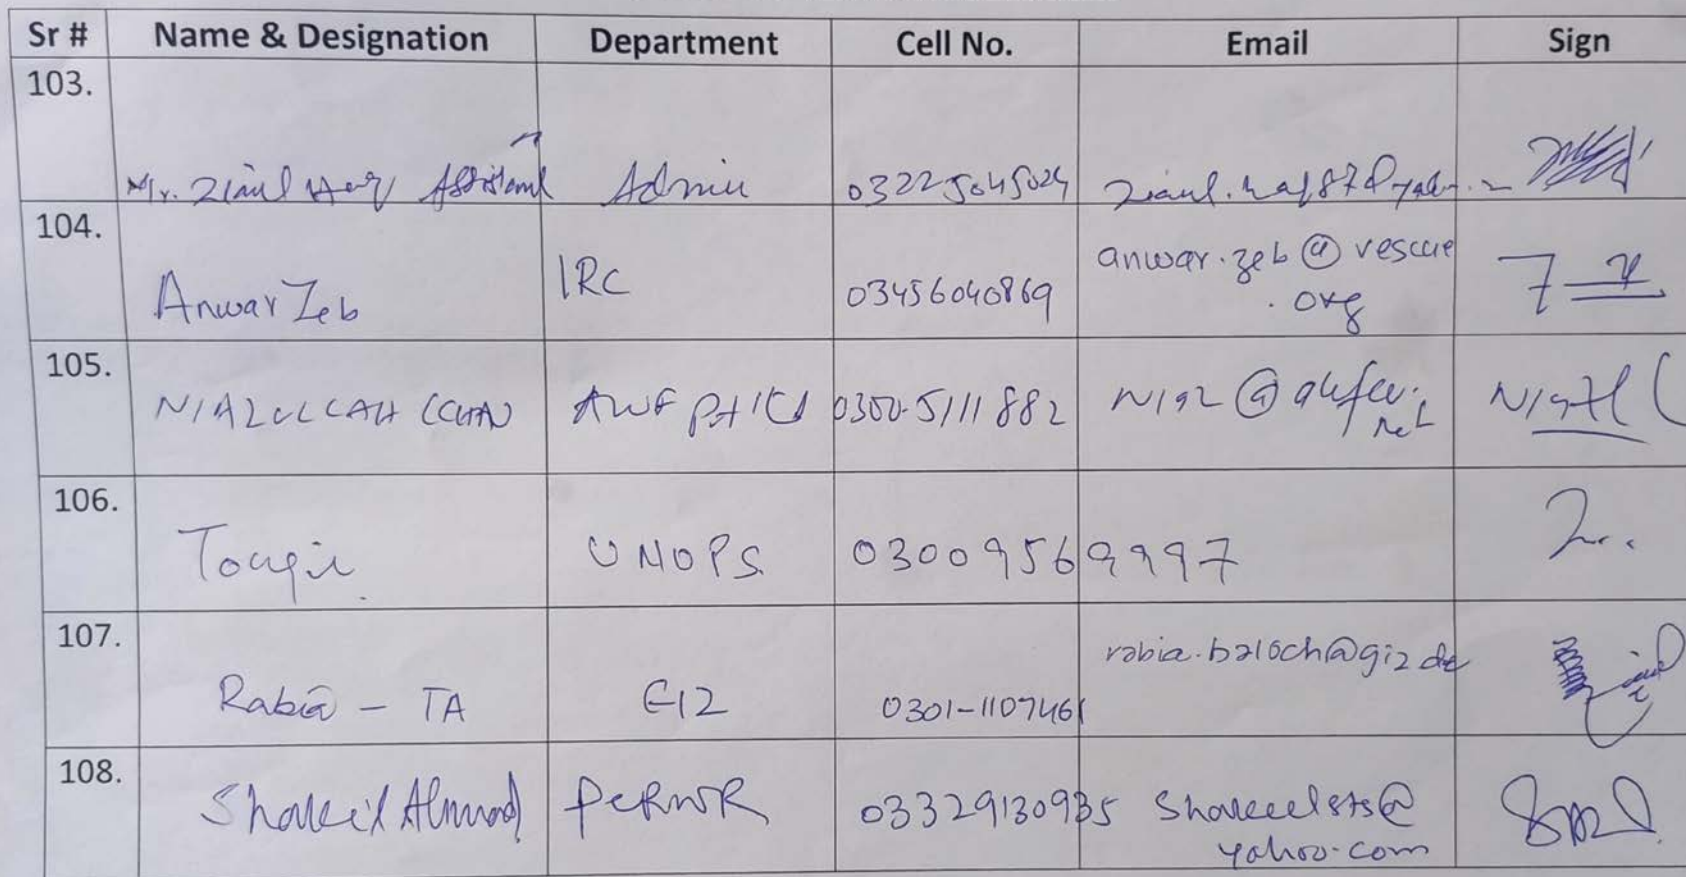 Sr # Name & Designation Department Cell No. Email Sign
103.
Mr. Ziaul Haq Assistant Admin 03225045024
104.
Anwar Zeb IRC 03456040869 anwar.zeb@rescue
.org
105.
NIAZULLAH KHAN 0300-5111882
106.
Touqir UNOPS 03009569997
107.
Rabia - TA GIZ 0301-1107461 rabia.baloch@giz.de
108.
Shakeel Ahmad PCRWR 03329130935 Shakeelsts@
yahoo.com